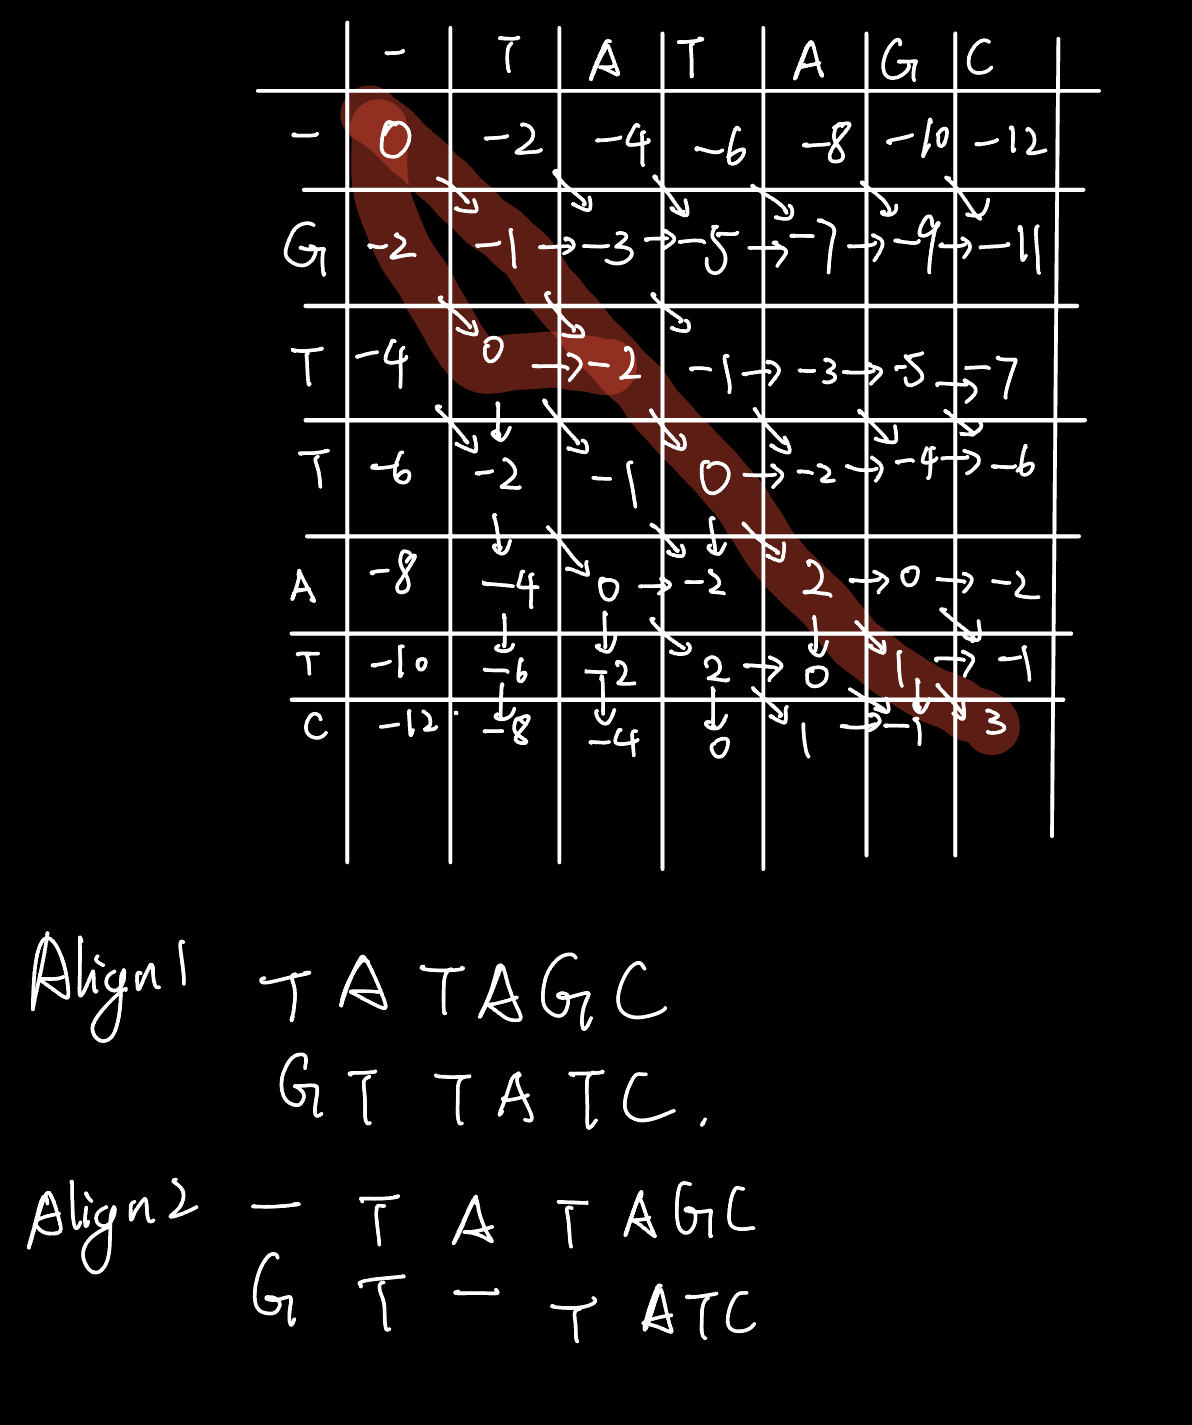 - T A T A G C
- 0 -2 -4 -6 -8 -10 -12
G -2 -1 → -3 → -5 → -7 → -9 → -11
T -4 0 → -2 -1 → -3 → -5 → -7
T -6 -2 -1 0 → -2 → -4 → -6
A -8 -4 0 → -2 2 → 0 → -2
T -10 -6 -2 2 → 0 1 → -1
C -12 -8 -4 0 1 → -1 3
Align1 T A T A G C
G T T A T C.
Align2 - T A T A G C
G T - T A T C